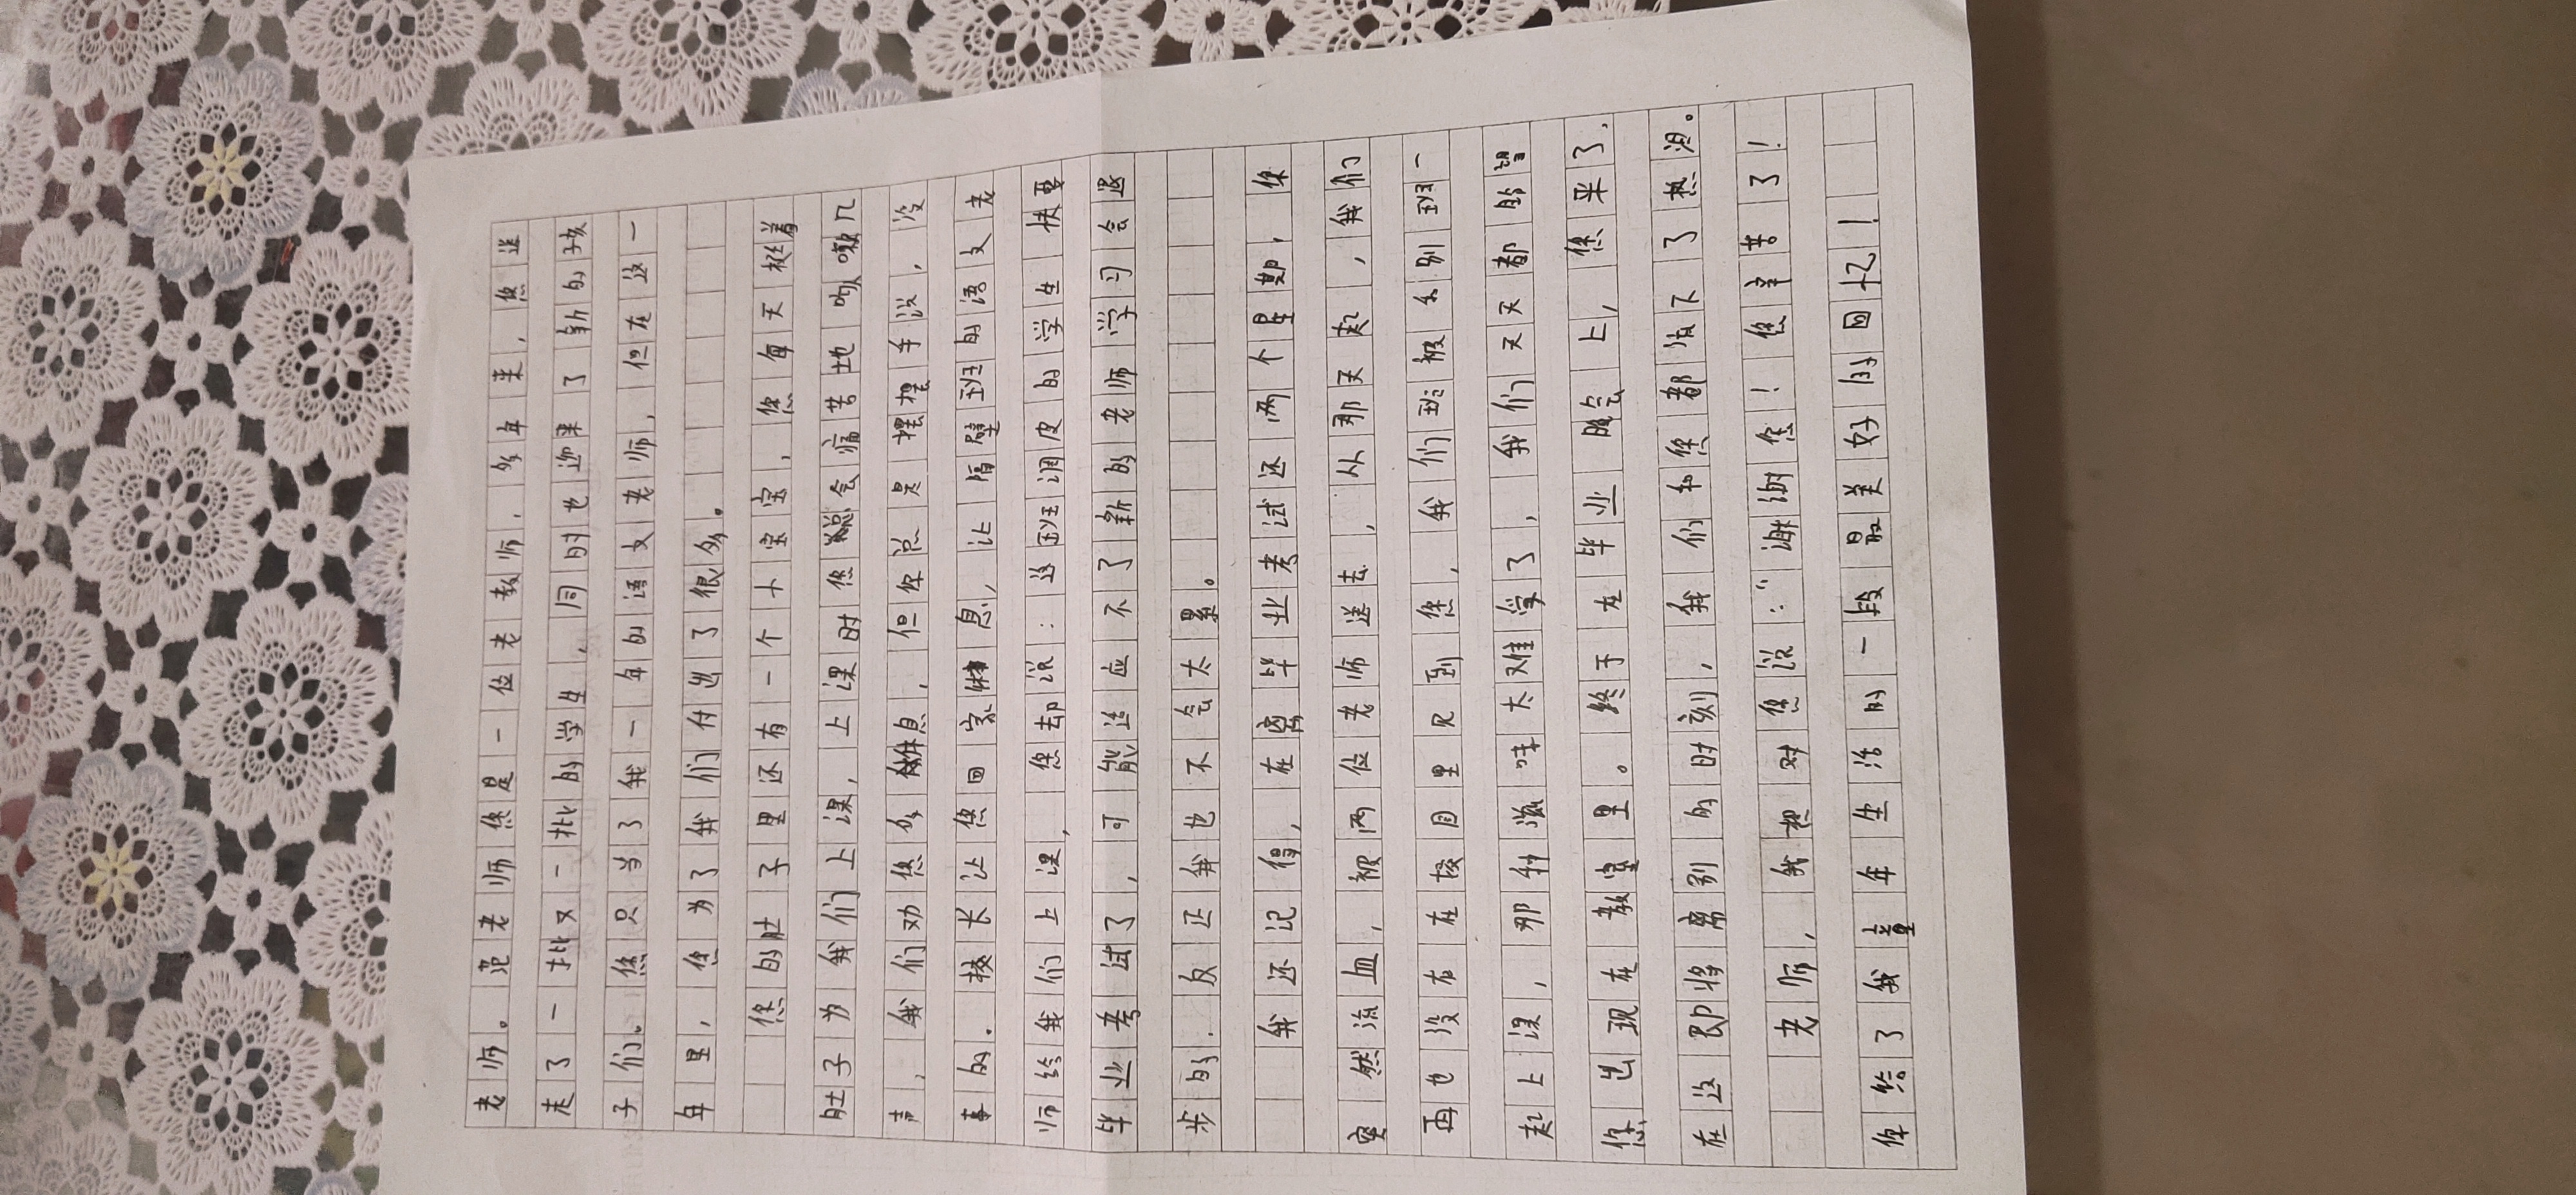 老师。范老师您是一位老教师，多年来，您送
走了一批又一批的学生，同时也迎来了新的孩
子们。您只当了我一年的语文老师，但在这一
年里，您为了我们付出了很多。
您的肚子里还有一个小宝宝，您每天挺着
肚子为我们上课，上课时您总会痛苦地咳嗽几
声，我们劝您多休息，但您总是摆摆手说，没
事的。校长让您回家休息，让隔壁班的语文老
师给我们上课，您却说：这班调皮的学生快要
毕业考试了，可能适应不了新的老师学习会退
步的，反正我也不会太累。
我还记得，在离毕业考试还两个星期，您
突然流血，被两位老师送去，从那天起，我们
再也没有在校园里见到您，我们班被分别班一
起上课，那种滋味太难受了，我们天天都盼望
您出现在教室里。终于在毕业晚会上，您来了，
在这即将离别的时刻，我们和您都流下了热泪。
老师，我想对您说：“谢谢您！您辛苦了！
你给了我童年生活的一段最美好的回忆！